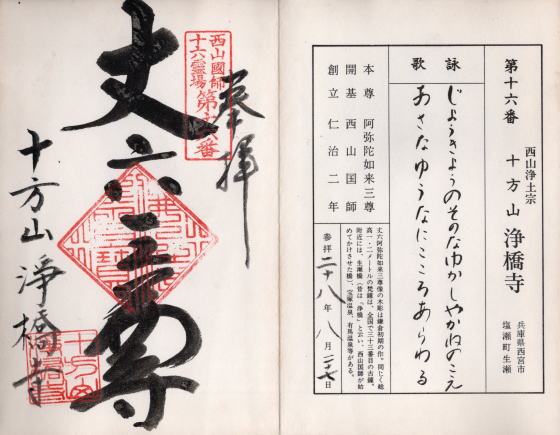 第十六番
西山浄土宗
十方山 浄橋寺
兵庫県西宮市
塩瀬町生瀬
詠歌
じょうきょうのそのなゆかしやかねのこえ
あさなゆうなにこころあらわる
本尊 阿弥陀如来三尊
開基 西山国師
創立 仁治二年
丈六阿弥陀如来三尊像の木彫は鎌倉初期の作。同じく総
高一・二メートルの梵鐘は、全国で三十三番目の古鐘。
附近には、生瀬橋(昔は、「浄橋」と云い、西山国師が始
めてかけさせた橋)、宝塚温泉、有馬温泉等がある。
参拝 二十八年 八月 二十七日
奉拝
西山國師
十六霊場 第十六番
丈六三尊
十方山 浄橋寺